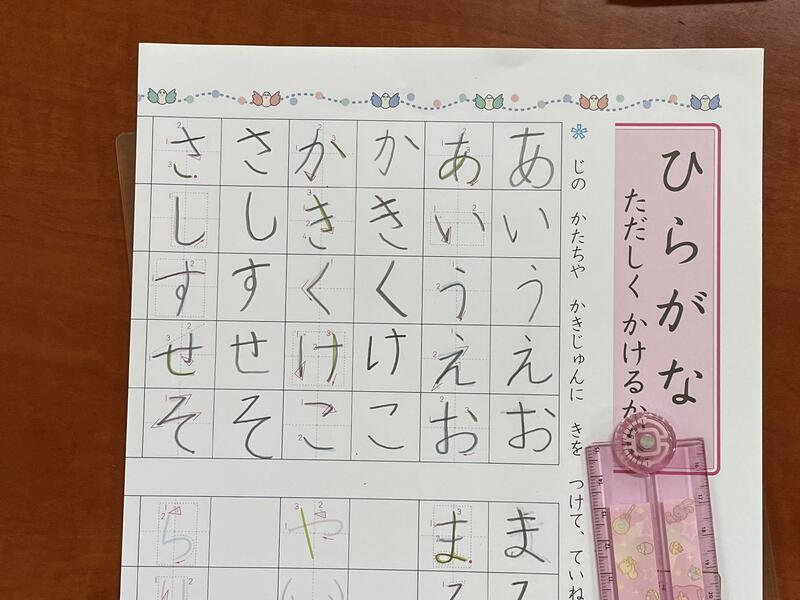 ひらがな
ただしく かけるか
じの かたちや かきじゅんに きを つけて、ていね
あいうえお
あいうえお
かきくけこ
かきくけこ
さしすせそ
さしすせそ
ま
ま
や
ら